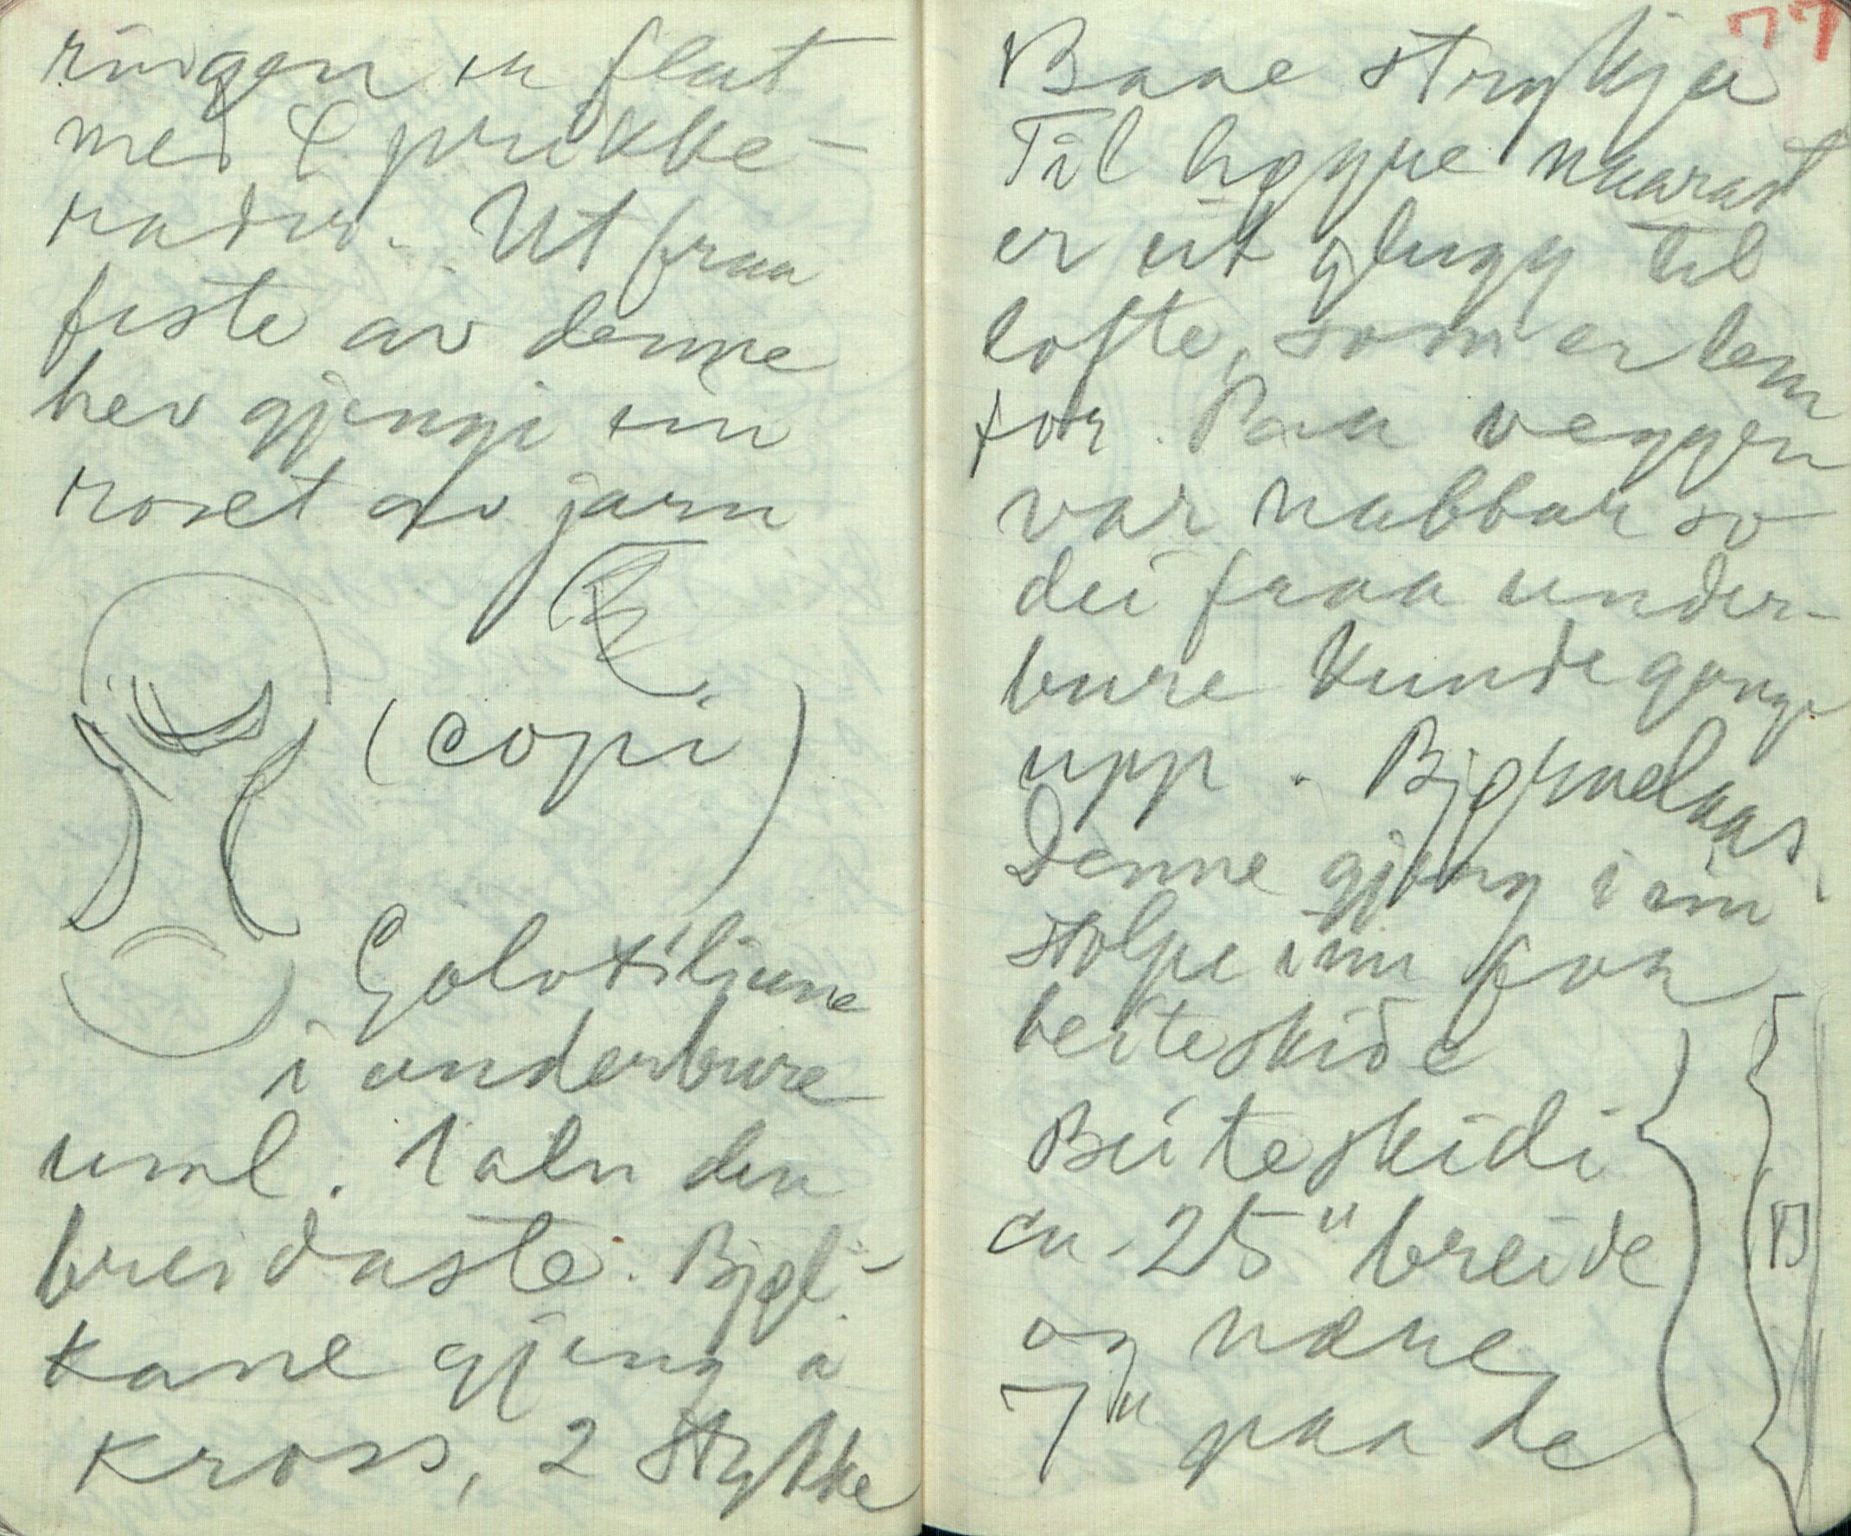 ringen er flat
med & prikke-
rader. Ut fraa
feste av denne
hev gjengi ein
roset av jarn
(copi)
Golvtiljune
i underbure
uml. 1 aln den
breidaste. Bjøl-
kane gjeng i
kross, 2 stykke
77
Baae strykja
Til høgre naarast
er eit glugg til
lofte, som er lem
for. Paa veggen
var nabbar so
dei fraa under-
bure kunde gange
upp. Bjørnelaas.
Denne gjeng i ein
stolpe inn for
beiteskide
Beiteskidi
er 25" breide
og nære
7" paa de
B